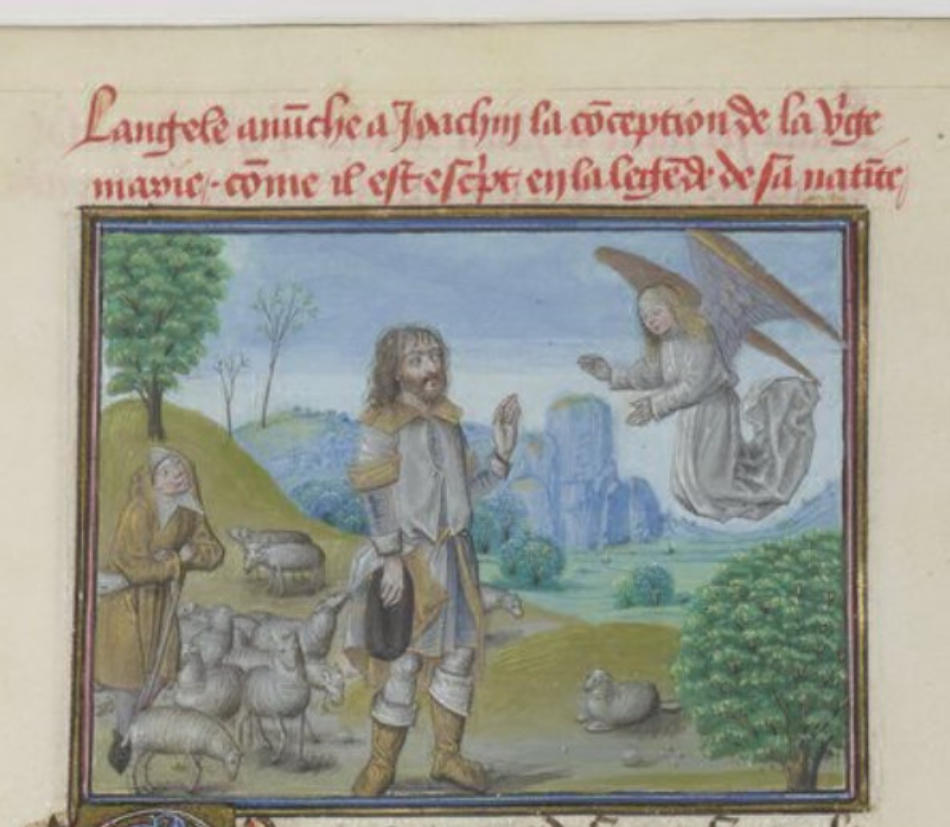 Langele anūche a Joachin la cōception de la v'ge
marie·cōme il est esc'pt en la legēde de sa natīte